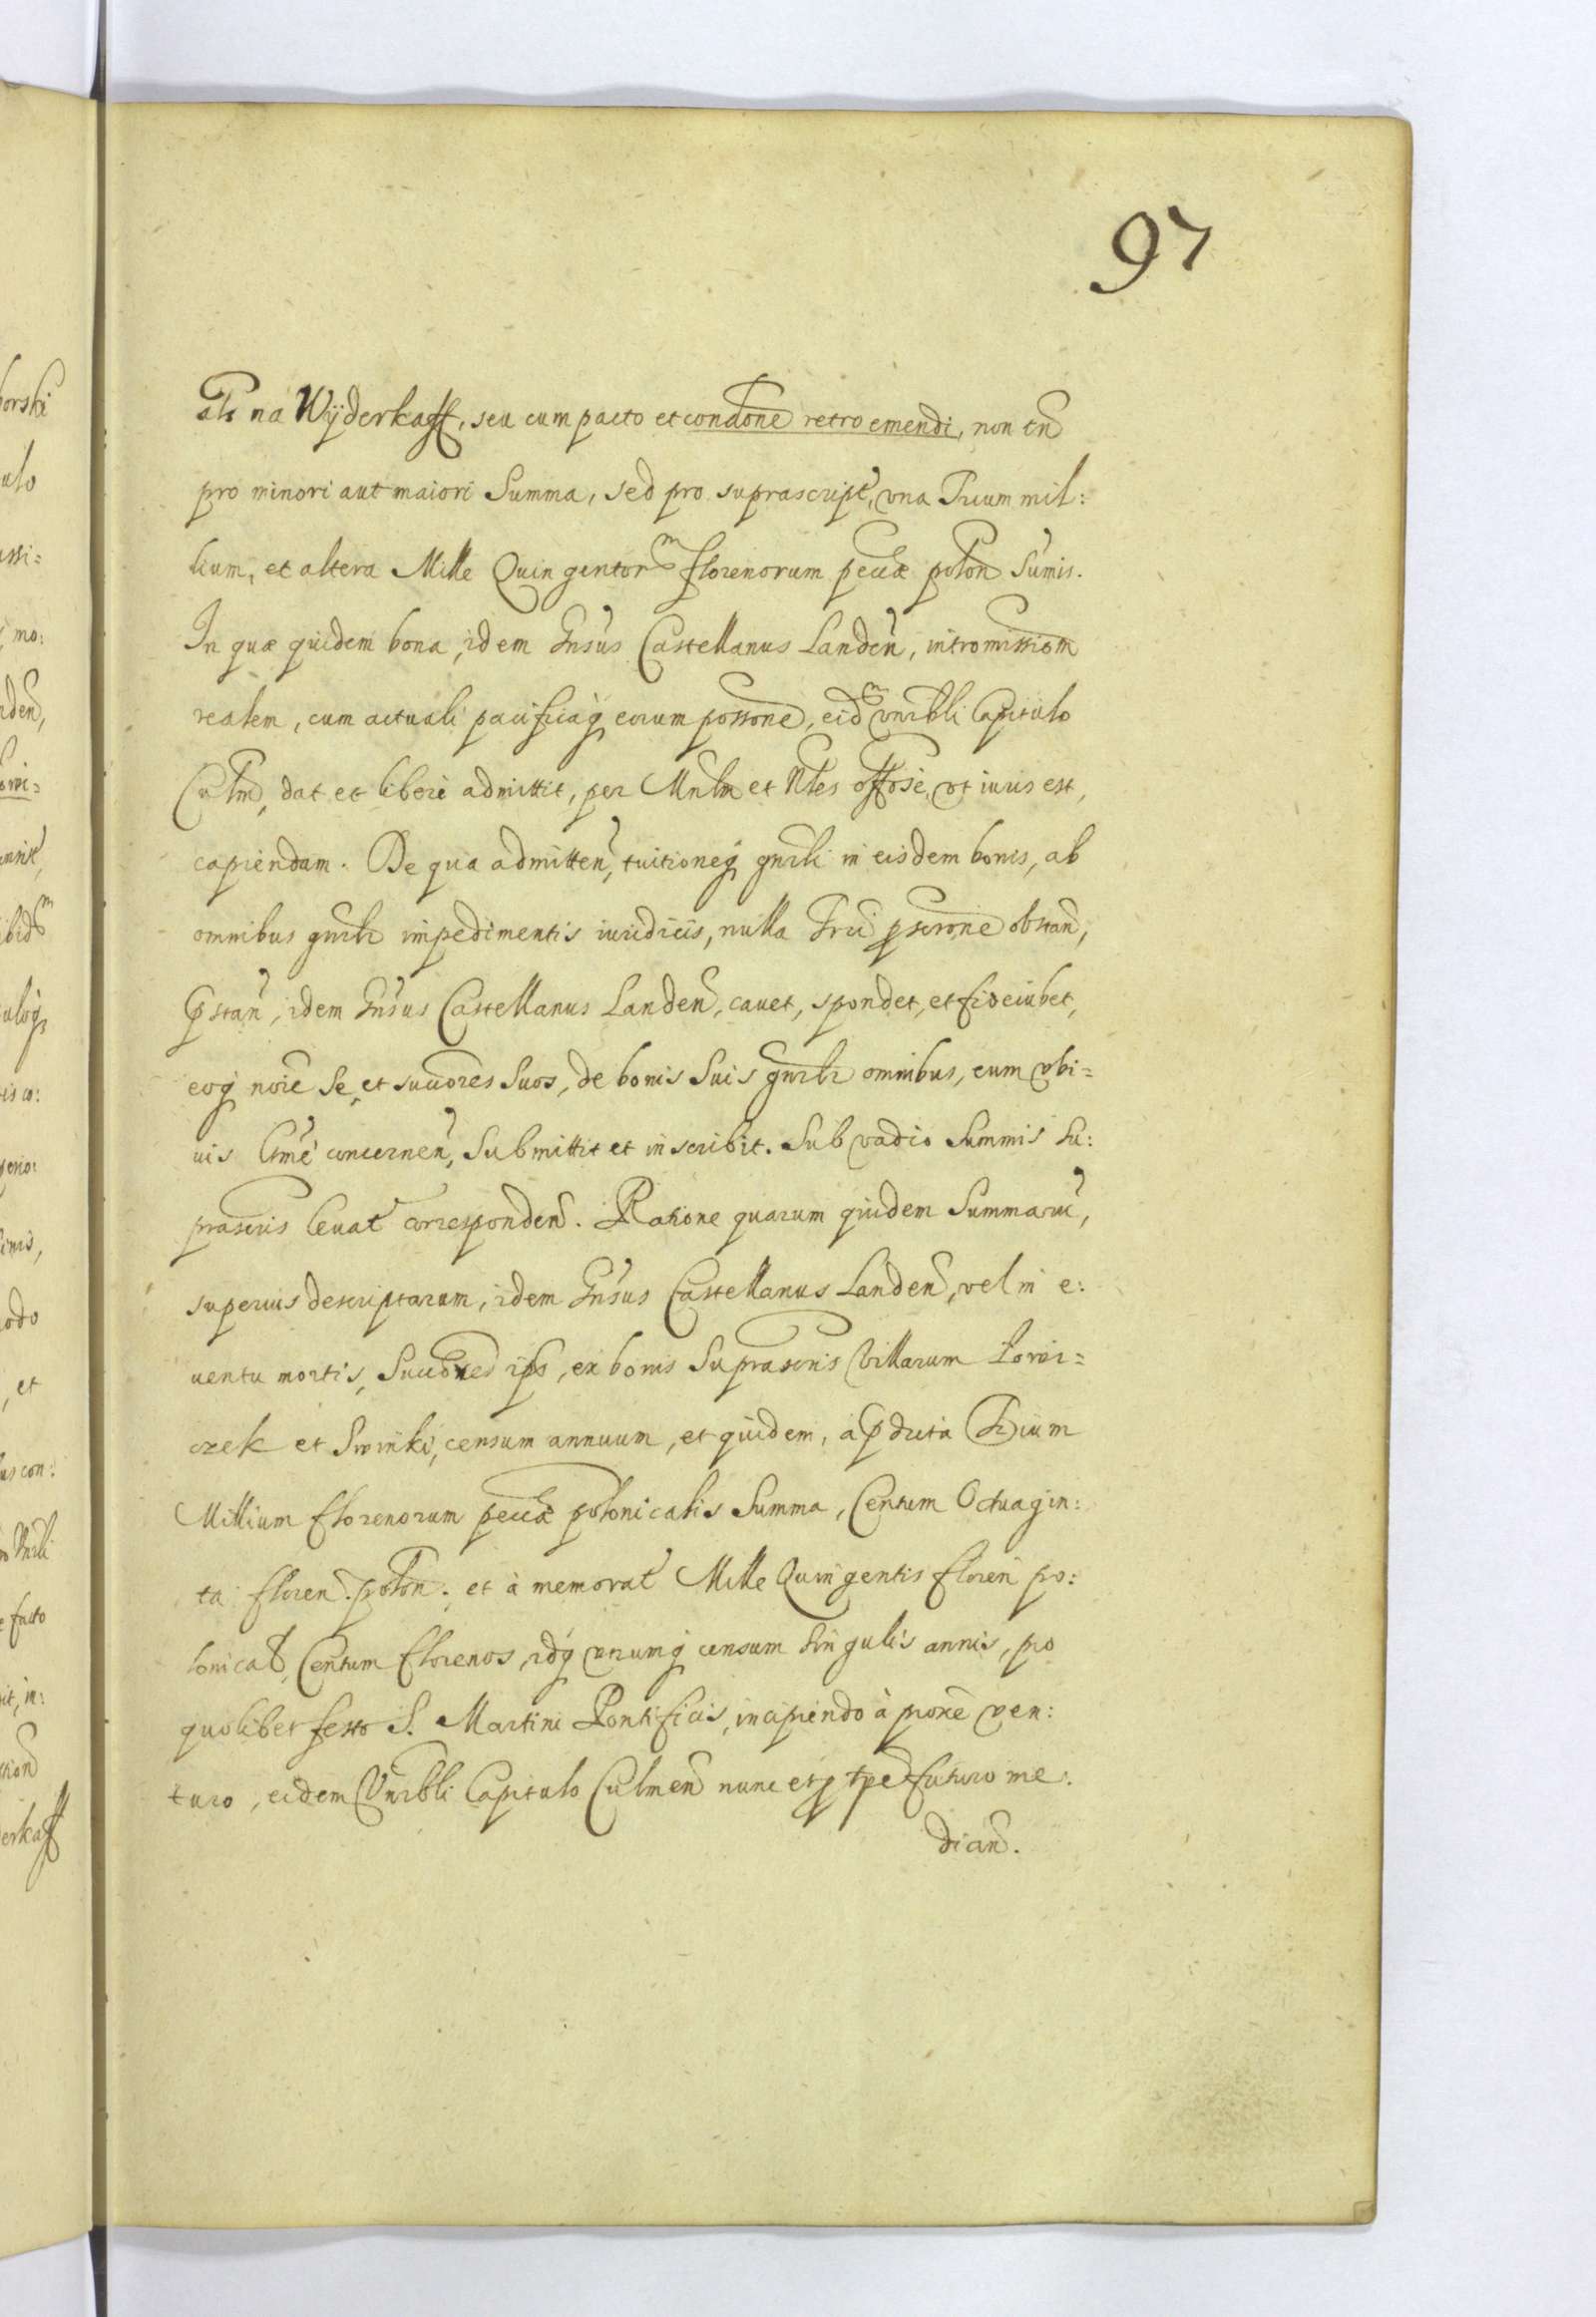 97
als na Wÿderkaff, seu cum pacto et condone retro emendi, non tn
pro minori aut maiori Summa, sed pro suprascript, vna Trium mil:
lium, et altera Mille Quingentorm florenorum pecuæ polon Sumis.
In quæ quidem bona, idem Gnsus Castellanus Landen, intromissiom
realem, cum actuali pacificaq eorum possone, eidm vnrbli Capitulo
Culm, dat et libere admittit, per Mnlm et Nles offose, vt iuris est,
capiendam. De qua admitten, tuitioneq gnrli in eisdem bonis, ab
omnibus gnrlr impedimentis iuridicis, nulla Trri pscrone obstan,
pstan, idem Gnsus Castellanus Landen, cauet, spondet, et fideiubet,
eoq noie Se, et succores Suos, de bonis Suis gnrlr omnibus, eum vbi=
uis concernen, Submittit et inscribit. Sub vadio Summis Su:
prascris leuat corresponden. Ratione quarum quidem Summaru,
superius descriptarum, idem Gnsus Castellanus Landen, vel in e:
uentu mortis, Succores ips, ex bonis Suprascris Villarum Lowi=
czek et Swinki, censum annuum, et quidem, a pdicta Trium
Millium florenorum pecuæ polonicalis Summa, Centum Octuagin:
ta floren. polon. et à memorat Mille Quingentis floren po:
lonical, Centum florenos, idq vtrumq censum Singulis annis, pro
quolibet festo S. Martini Pontificis, incipiendo à proxe ven:
turo, eidem Vnrbli Capitulo Culmen nunc et p tpe futuro me:
dian.
horski
ulo
mo:
nden,
owi=
ibidm
uloq
is co:
odo
, et
us con:
Vnrli
facto
it, in:
derkaff